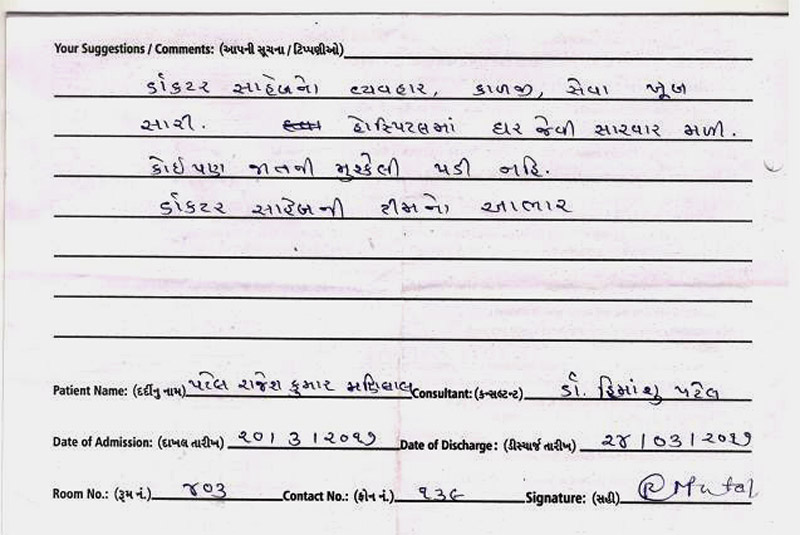 Your Suggestions / Comments: (આપની સૂચના / ટિપ્પણીઓ)
ડૉકટર સાહેબનો વ્યવહાર, કાળજી, સેવા ખૂબ
સારી. હોસ્પિટલમાં ઘર જેવી સારવાર મળી.
કોઈપણ જાતની મુશ્કેલી પડી નહિ.
ડૉકટર સાહેબની ટીમનો આભાર
Patient Name: (દર્દીનુ નામ) પટેલ રાજેશ કુમાર મણિલાલ Consultant: (કન્સલ્ટન્ટ) ડૉ. હિમાંશુ પટેલ
Date of Admission: (દાખલ તારીખ) ૨૦/૩/૨૦૧૭ Date of Discharge: (ડીસ્ચાર્જ તારીખ) ૨૪/૦૩/૨૦૧૭
Room No.: (રૂમ નં.) ૪૦૩ Contact No.: (ફોન નં.) ૧૩૬ Signature: (સહી)